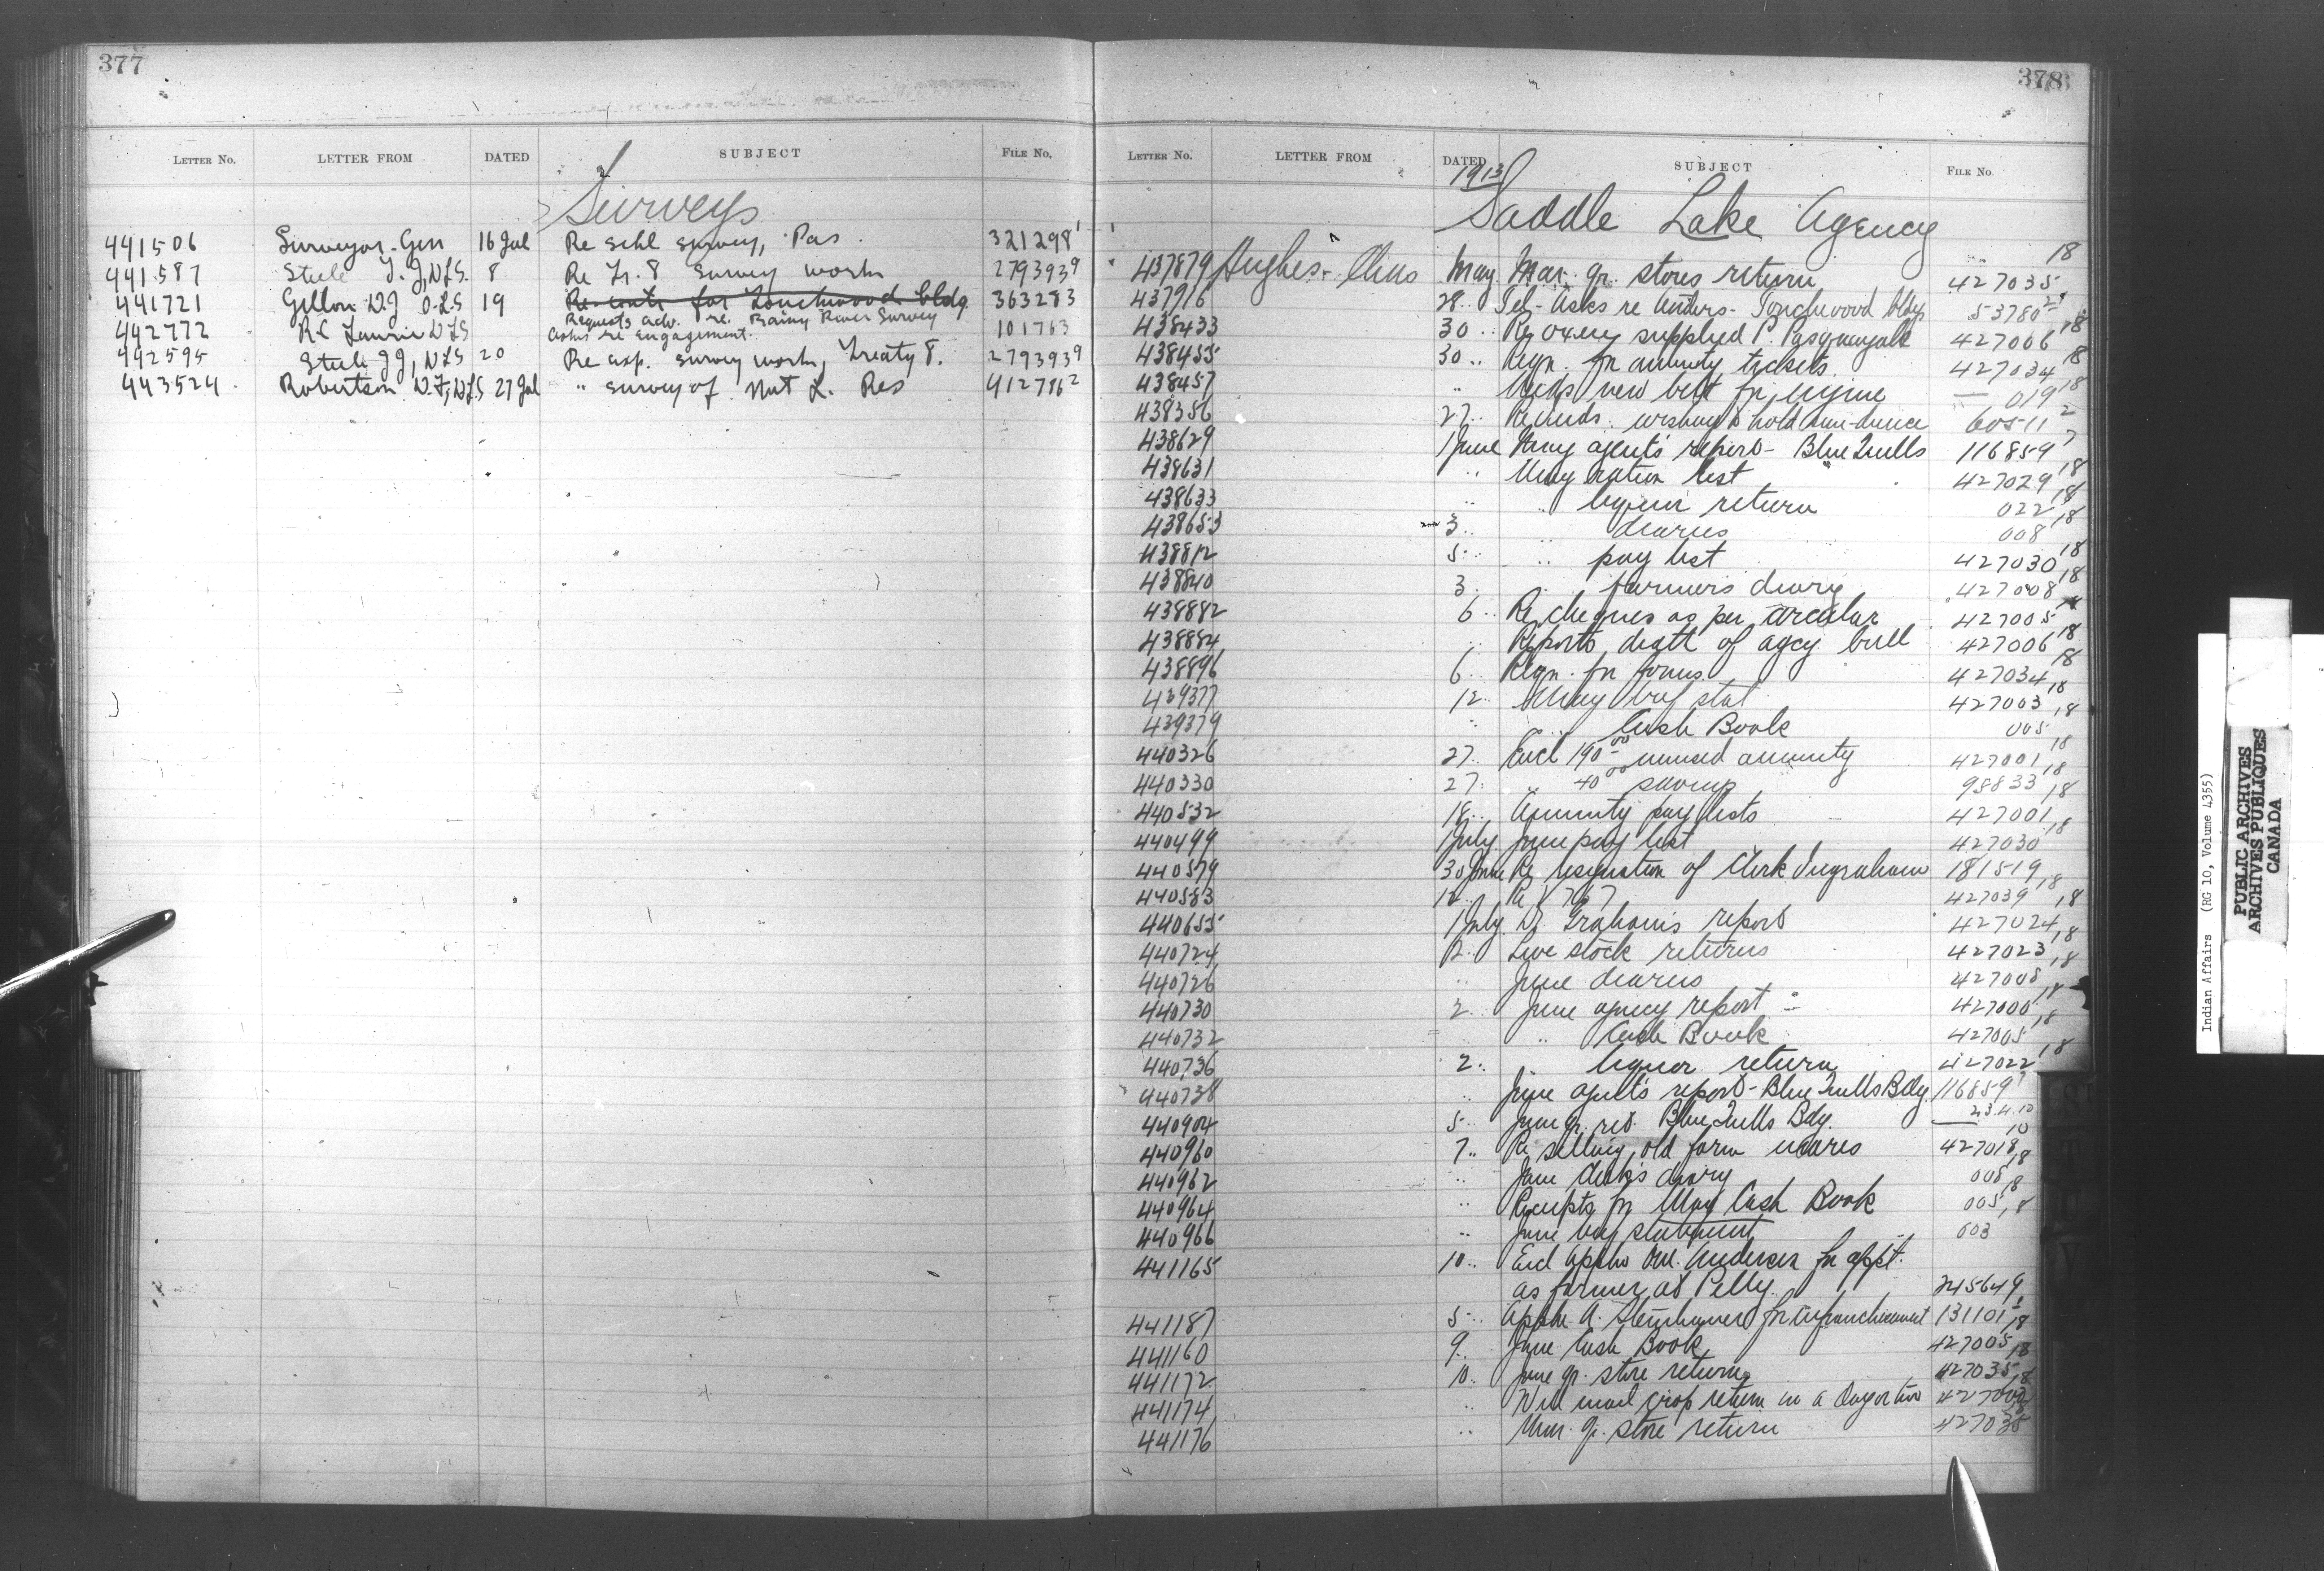 377
LETTER NO. LETTER FROM DATED SUBJECT FILE NO.
Surveys
441506 Surveyor-Gen 16 Jul Re schl survey, Pas. 321298 1
441587 Steele I.J, DLS. 8 Re Tr. 8 survey work 279393 9
441721 Gillon D.J O.L.S 19 Re for Touchwood bldg 363283
Requests adv. re. Rainy River Survey
442772 RC Laurie DLS Asks re engagement. 101763
442595 Steele IJ, DLS 20 Re exp. survey work, Treaty 8. 279393 9
443524 Robertson D.F, DLS 27 Jul " survey of Nut L. Res 412786 2
378
LETTER NO. LETTER FROM DATED SUBJECT FILE NO.
1913
Saddle Lake Agency
437879 Hughes May Mar. qr. stores return 427035 18
437916 28 " Tel- Asks re tenders- Touchwood bldgs 53780
438433 30 " Re oxen supplied P. 427006 18
438455 30 " Reqn. for annuity tickets. 427034 18
438457 " Needs new belt for engine — 019 18
438356 27 " Re Inds. wishing to hold sun-dance 60511 2
438629 1 June May agent's report- Blue Quills 116859 7
438631 " May ration list 427029 18
438633 " " liquor return 022 18
438653 3 " " diaries 008 18
438812 5 " " pay list 427030 18
438840 3 " farmers diary 427008 18
438882 6 " Re cheques as per circular 427005 18
438884 " Reports death of agcy. bull 427006 18
438896 6 " Reqn. for forms 427034 18
439377 12 " May stat 427003 18
439379 " " Cash Book 005 18
440326 27 " Encl 190 00 unused annuity 427001 18
440330 27 " " 40 00 98833 18
440532 18 " Annuity pay lists 427001 18
440499 1 July June pay list 427030 18
440579 30 June Re resignation of Clerk Ingraham 181519
440583 Re V 767 427039 18
440655 1 July Dr. Graham's report 427024 18
440724 2 " Live stock returns 427023 18
440726 " June diaries 427008 18
440730 2 " June agency report 427000 18
440732 " " Cash Book 427005 18
440736 2 " " liquor return 427022 18
440738 " June agent's report- Blue Quills Bdg. 116859 7
440904 5 " June qr. ret. Blue Quills Bdg. — 23.4.10
440960 7 " Re selling old farm mares 427018 18
440962 " June clerk's diary 008 18
440964 " Receipts for May Cash Book 005 18
440966 " June statement 003
441165 10 " Encl appln Anderson for appt.
as farmer at Pelly. 245649
441187 5 " Appln A. Steinhauer for enfranchisement 131101
441160 9 " June Cash Book 427005 18
441172 10 " June qr. store return 427035 18
441174 " Will mail crop return in a day or two
441176 " Mar. qr. store return 427035
Indian Affairs (RG 10, Volume 4355)
PUBLIC ARCHIVES
ARCHIVES PUBLIQUES
CANADA